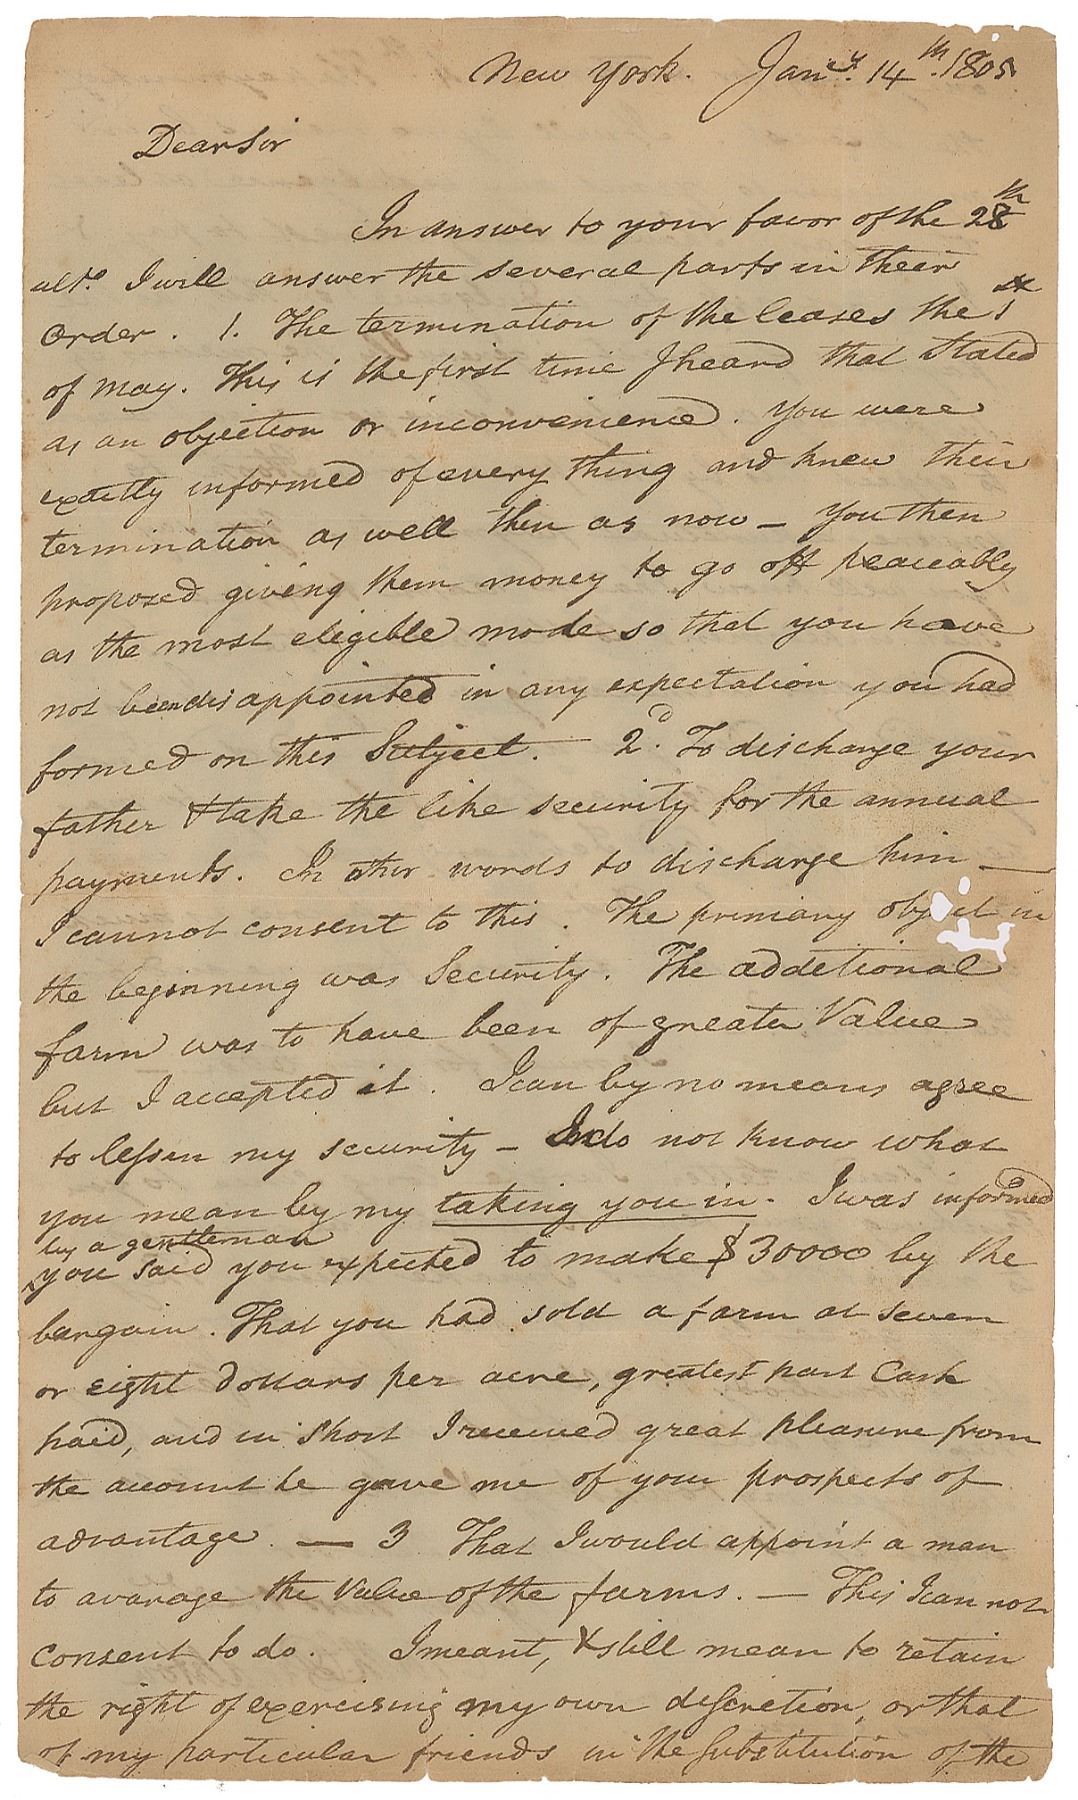 New York. Jan.ey 14th. 1805.
Dear Sir
In answer to your favor of the 28th
ulto. I will answer the several parts in their
order. 1. The termination of the leases the 1st
of may. This is the first time I heard that Stated
as an objection or inconvenience. You were
exactly informed of every thing and knew their
termination as well then as now — You then
proposed giving them money to go off peaceably
as the most eligible mode so that you have
not been disappointed in any expectation you had
formed on this Subject. 2d. To discharge your
father & take the like security for the annual
payments. In other words to discharge him —
I cannot consent to this. The primary object in
the beginning was Security. The additional
farm was to have been of greater Value
but I accepted it. I can by no means agree
to lessen my security — I do not know what
you mean by my taking you in. I was informed
by a gentleman
you said you expected to make $30000 by the
bargain. That you had sold a farm at seven
or eight Dollars per acre, greatest part Cash
paid, and in short I received great pleasure from
the account he gave me of your prospects of
advantage. — 3 That I would appoint a man
to avarage the Value of the farms. — This I can not
consent to do. I meant, & still mean to retain
the right of exercising my own discretion, or that
of my particular friends in the Substitution of the